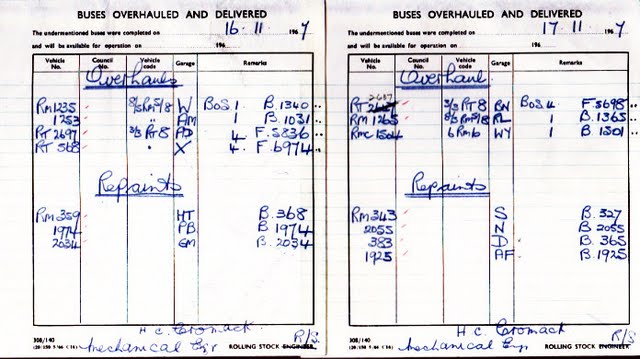 BUSES OVERHAULED AND DELIVERED
The undermentioned buses were completed on 16.11. 1967
and will be available for operation on 196
Vehicle No. Council No. Vehicle code Garage Remarks
Overhauls
RM1235 8/5RM5/8 W BOS 1. B.1340
1253 " AM 1 B.1031
RT 2697 3/3 RT8 AD 4 F.5836
RT 568 " X 4. F.6974
Repaints
RM 359 HT B.368
1974 PB B 1974
2034 GM B.2034
H C. Cromack
308/140 Mechanical Eng R/S.
ROLLING STOCK ENGINEER
BUSES OVERHAULED AND DELIVERED
The undermentioned buses were completed on 17.11 1967
and will be available for operation on 196
Vehicle No. Council No. Vehicle code Garage Remarks
Overhaul
2637
RT 3/3 RT8 BN BOS 4. F.5698
RM 1265 8/5 RM5/8 RL 1 B.1365
RMC 1504 6 RM6 WY 1 B 1501
Repaints
RM343 S B.327
2055 N B 2055
383 D B.365
1925 AF B.1925
H C. Cromack
308/140 Mechanical Eng R/S.
ROLLING STOCK ENGINEER